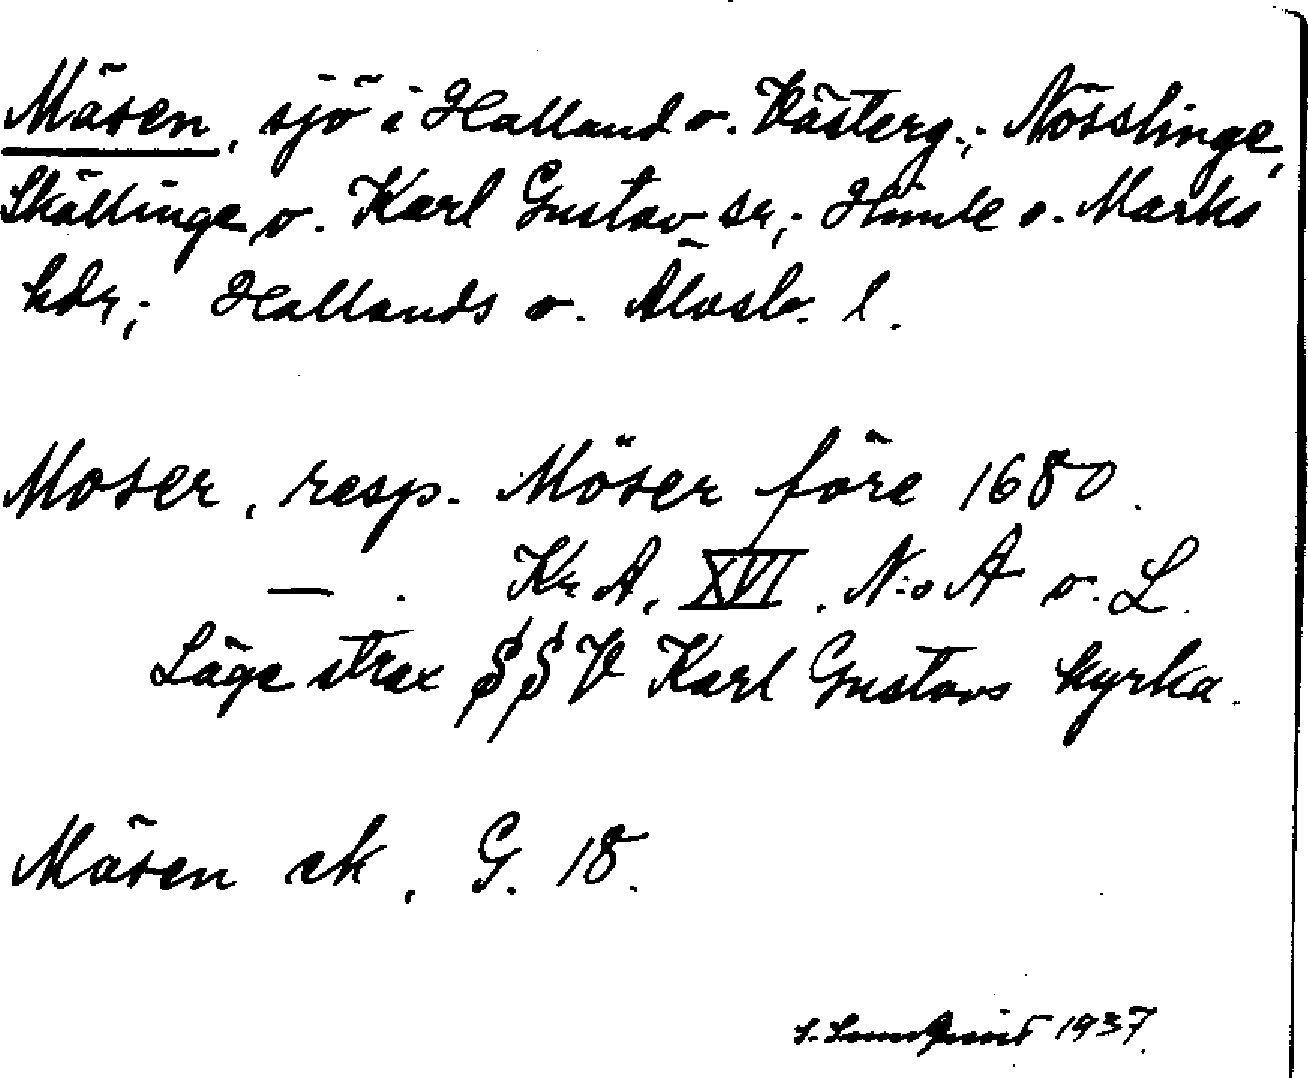 Mäsen, sjö i Halland o. Västerg.; Nösslinge,
Skällinge o. Karl Gustav sr,; Himle o. Marks
hdr,; Hallands o. Älvsb. l.
Moser, resp. Möser före 1680.
— . Kr A, XVI, N:o A o. L.
Läge strax § § V Karl Gustavs kyrka.
Mäsen ek, G. 18.
S. Lundqvist 1937.